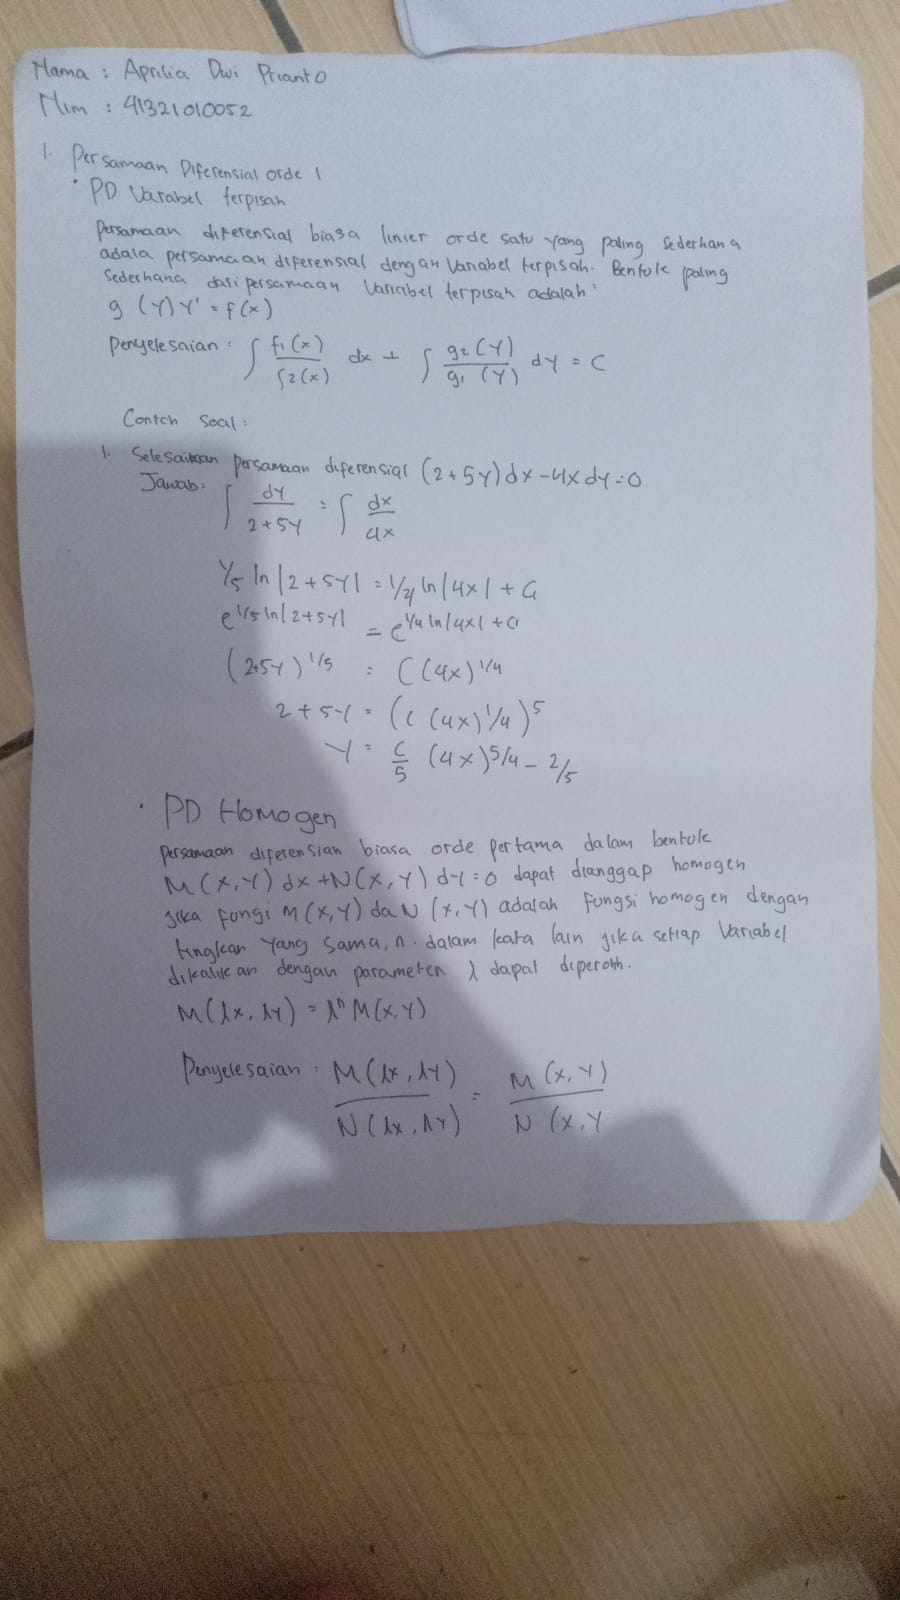 Nama : Aprilia Dwi Prianto
Nim : 41321010052
1. Persamaan Diferensial orde 1
• PD Varabel terpisah
Persamaan diferensial biasa linier orde satu yang paling sederhana
adala persamaan diferensial dengan Variabel terpisah. Bentuk paling
Sederhana dari persamaan Variabel terpisah adalah :
g (Y) Y' = f(x)
Penyelesaian : ∫ f1(x)/f2(x) dx + ∫ g2(Y)/g1(Y) dY = C
Contoh Soal :
1. Selesaikan persamaan diferensial (2+5Y)dx-4xdy=0
Jawab : ∫ dY/2+5Y = ∫ dx/4x
1/5 ln |2+5Y| = 1/4 ln |4x| + C1
e^1/5 ln|2+5Y| = e^1/4 ln|4x| + C1
(2+5Y)^1/5 = C(4x)^1/4
2+5Y = (C(4x)^1/4)^5
Y = C/5 (4x)^5/4 - 2/5
• PD Homogen
Persamaan diferensian biasa orde pertama dalam bentuk
M(x,Y) dx +N(x,Y) dY=0 dapat dianggap homogen
jika fongi M(x,Y) da N (x,Y) adalah fungsi homogen dengan
tingkan Yang sama, n. dalam kata lain jika setiap Variabel
dikalikan dengan parameten λ dapat diperohh.
M(λx, λY) = λ^n M(x,Y)
Penyelesaian : M(λx, λY)/N(λx, λY) = M(x,Y)/N(x,Y